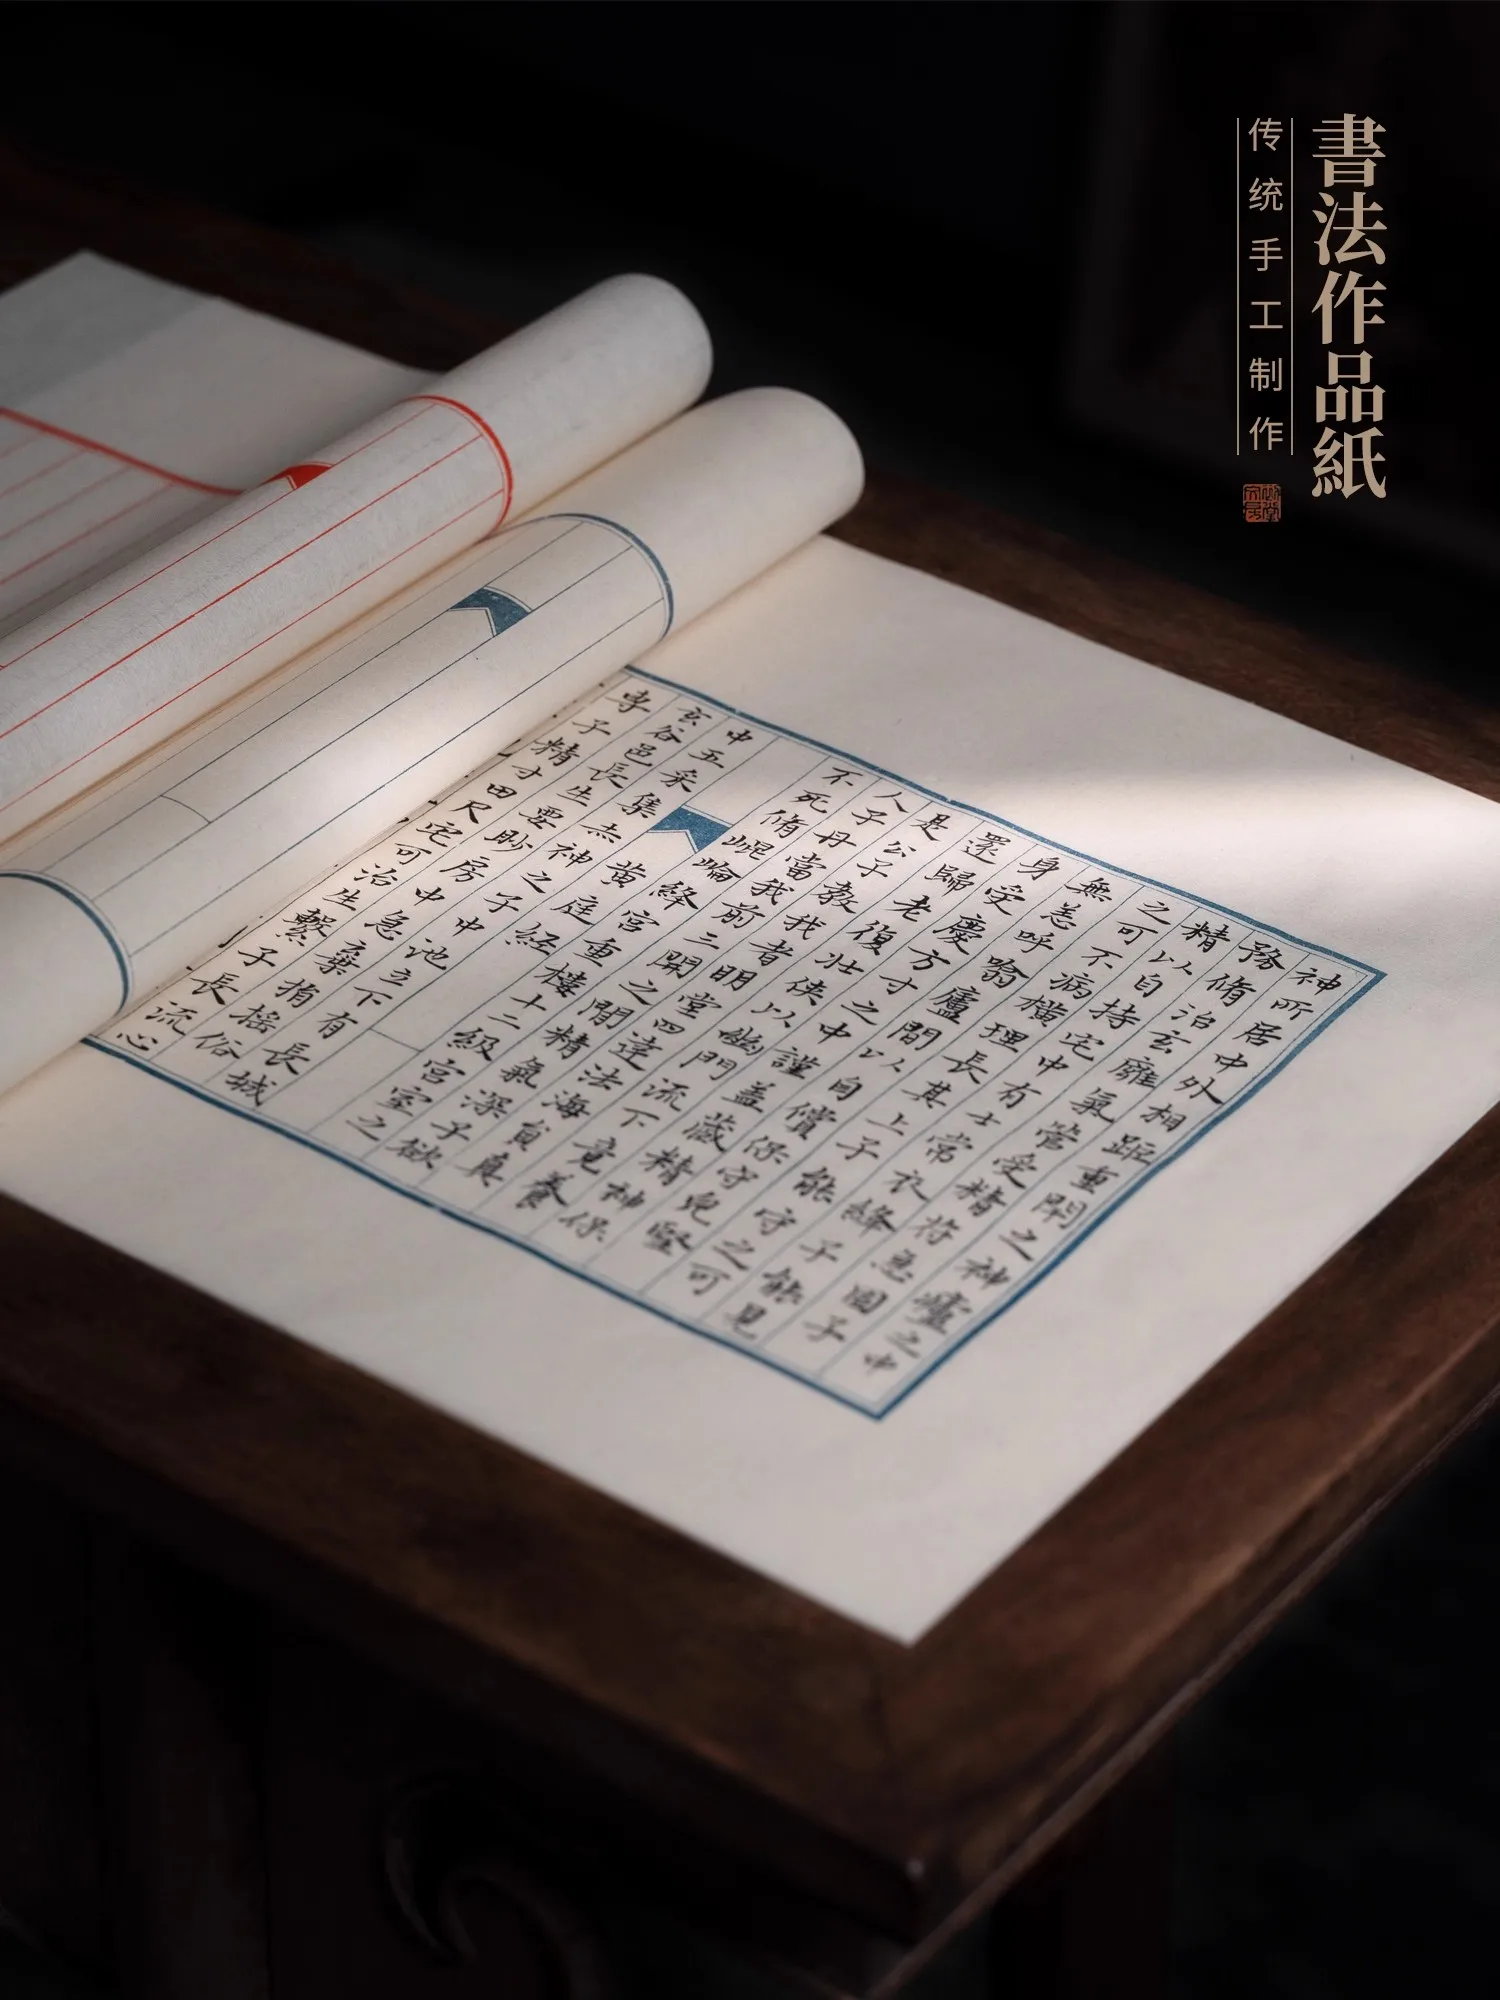 書法作品紙
传统手工制作
神所居中外相距重閉之神廬之中
務脩治玄廱氣管受精符急固子
精以自持宅中有士常衣絳子能見
之可不病橫理長其上子能守之可
無恙呼噏廬間以自償保守兒堅
身受慶方寸之中謹蓋藏精神
還歸老復壯俠以幽門流下竟養
是公子教我者明堂四達法海員真
人子丹當我前三關之間精氣深子欲
不死脩崐崘絳宮重樓十二級宮室之
黃庭經
中五采集赤神之子中池立下有長城
玄谷邑長生要眇房中急棄捐搖俗
專子精寸田尺宅可治生繫子長流心